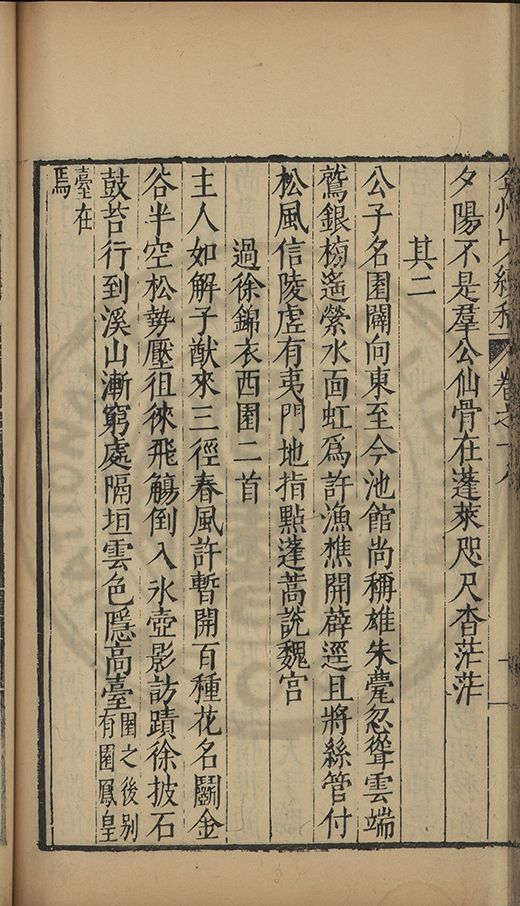 弇州山人續稿 卷之十八
夕陽不是羣公仙骨在蓬萊咫尺杳茫茫
其二
公子名園闢向東至今池館尚稱雄朱甍忽聳雲端
鷲銀椀遙縈水面虹爲許漁樵開薜逕且將絲管付
松風信陵虗有夷門地指點蓬蒿說魏宮
過徐錦衣西園二首
主人如解子猷來三徑春風許暫開百種花名鬬金
谷半空松勢壓徂徠飛觴倒入氷壺影訪蹟徐披石
鼓苔行到溪山漸窮處隔垣雲色隱高臺園之後别有園鳳皇
臺在焉